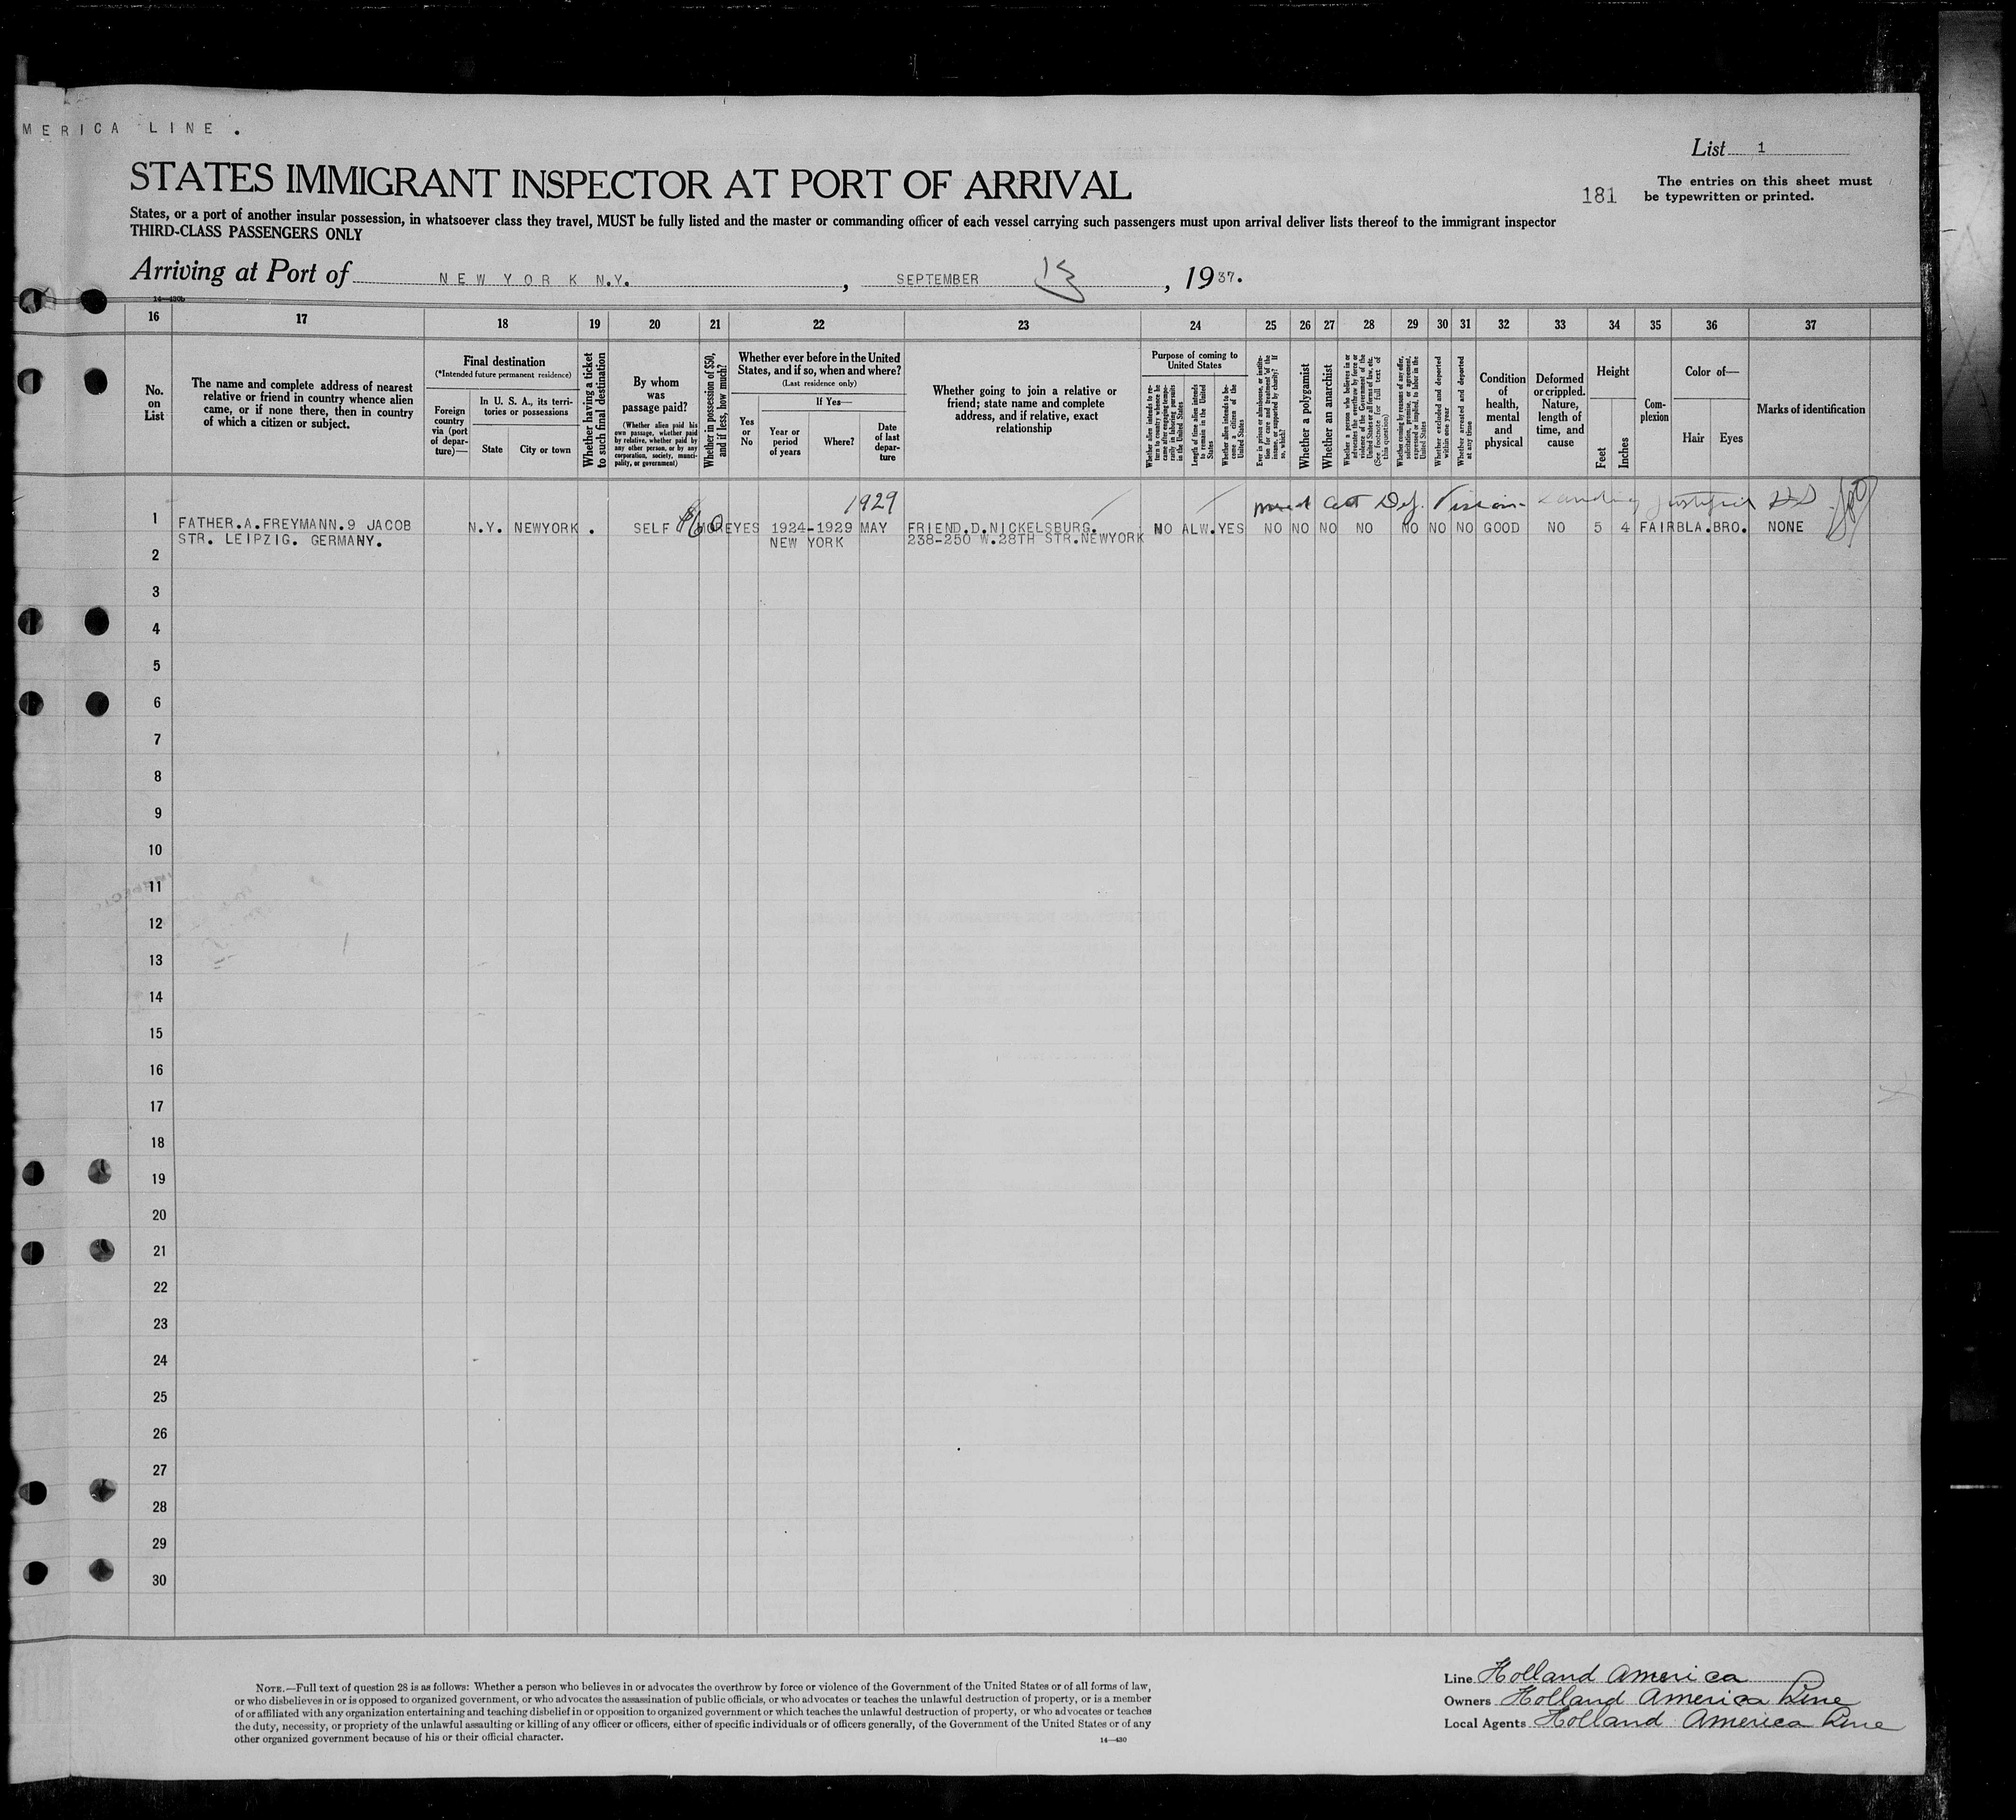 MERICA LINE .
List 1
STATES IMMIGRANT INSPECTOR AT PORT OF ARRIVAL
181
The entries on this sheet must
be typewritten or printed.
States, or a port of another insular possession, in whatsoever class they travel, MUST be fully listed and the master or commanding officer of each vessel carrying such passengers must upon arrival deliver lists thereof to the immigrant inspector
THIRD-CLASS PASSENGERS ONLY
Arriving at Port of NEW YORK N.Y. , SEPTEMBER 13 , 1937.
14-430b
16 17 18 19 20 21 22 23 24 25 26 27 28 29 30 31 32 33 34 35 36 37
No.
on
List
The name and complete address of nearest
relative or friend in country whence alien
came, or if none there, then in country
of which a citizen or subject.
Final destination
(*Intended future permanent residence)
Foreign
country
via (port
of depar-
ture)—
In U. S. A., its terri-
tories or possessions
State
City or town
Whether having a ticket
to such final destination
By whom
was
passage paid?
(Whether alien paid his
own passage, whether paid
by relative, whether paid by
any other person, or by any
corporation, society, munici-
pality, or government)
Whether in possession of $50,
and if less, how much?
Whether ever before in the United
States, and if so, when and where?
(Last residence only)
Yes
or
No
If Yes—
Year or
period
of years
Where?
Date
of last
depar-
ture
Whether going to join a relative or
friend; state name and complete
address, and if relative, exact
relationship
Purpose of coming to
United States
Whether alien intends to re-
turn to country whence he
came after engaging tempo-
rarily in laboring pursuits
in the United States
Length of time alien intends
to remain in the United
States
Whether alien intends to be-
come a citizen of the
United States
Ever in prison or almshouse, or institu-
tion for care and treatment of the
insane, or supported by charity? If
so, which?
Whether a polygamist
Whether an anarchist
Whether a person who believes in or
advocates the overthrow by force or
violence of the Government of the
United States or all forms of law, etc.
(See footnote for full text of
this question)
Whether coming by reason of any offer,
solicitation, promise, or agreement,
expressed or implied, to labor in the
United States
Whether excluded and deported
within one year
Whether arrested and deported
at any time
Condition
of
health,
mental
and
physical
Deformed
or crippled.
Nature,
length of
time, and
cause
Height
Feet
Inches
Com-
plexion
Color of—
Hair
Eyes
Marks of identification
1929
Cert Def. Vision Landing Justified
1 FATHER.A.FREYMANN.9 JACOB N.Y. NEWYORK . SELF $60 MORE YES 1924-1929 MAY FRIEND.D.NICKELSBURG. NO ALW. YES NO NO NO NO NO NO NO GOOD NO 5 4 FAIR BLA. BRO. NONE
STR. LEIPZIG. GERMANY. NEW YORK 238-250 W.28TH STR.NEWYORK
2
3
4
5
6
7
8
9
10
11
12
13
14
15
16
17
18
19
20
21
22
23
24
25
26
27
28
29
30
NOTE.—Full text of question 28 is as follows: Whether a person who believes in or advocates the overthrow by force or violence of the Government of the United States or of all forms of law,
or who disbelieves in or is opposed to organized government, or who advocates the assassination of public officials, or who advocates or teaches the unlawful destruction of property, or is a member
of or affiliated with any organization entertaining and teaching disbelief in or opposition to organized government or which teaches the unlawful destruction of property, or who advocates or teaches
the duty, necessity, or propriety of the unlawful assaulting or killing of any officer or officers, either of specific individuals or of officers generally, of the Government of the United States or of any
other organized government because of his or their official character.
14-430
Line Holland America
Owners Holland America Line
Local Agents Holland America Line